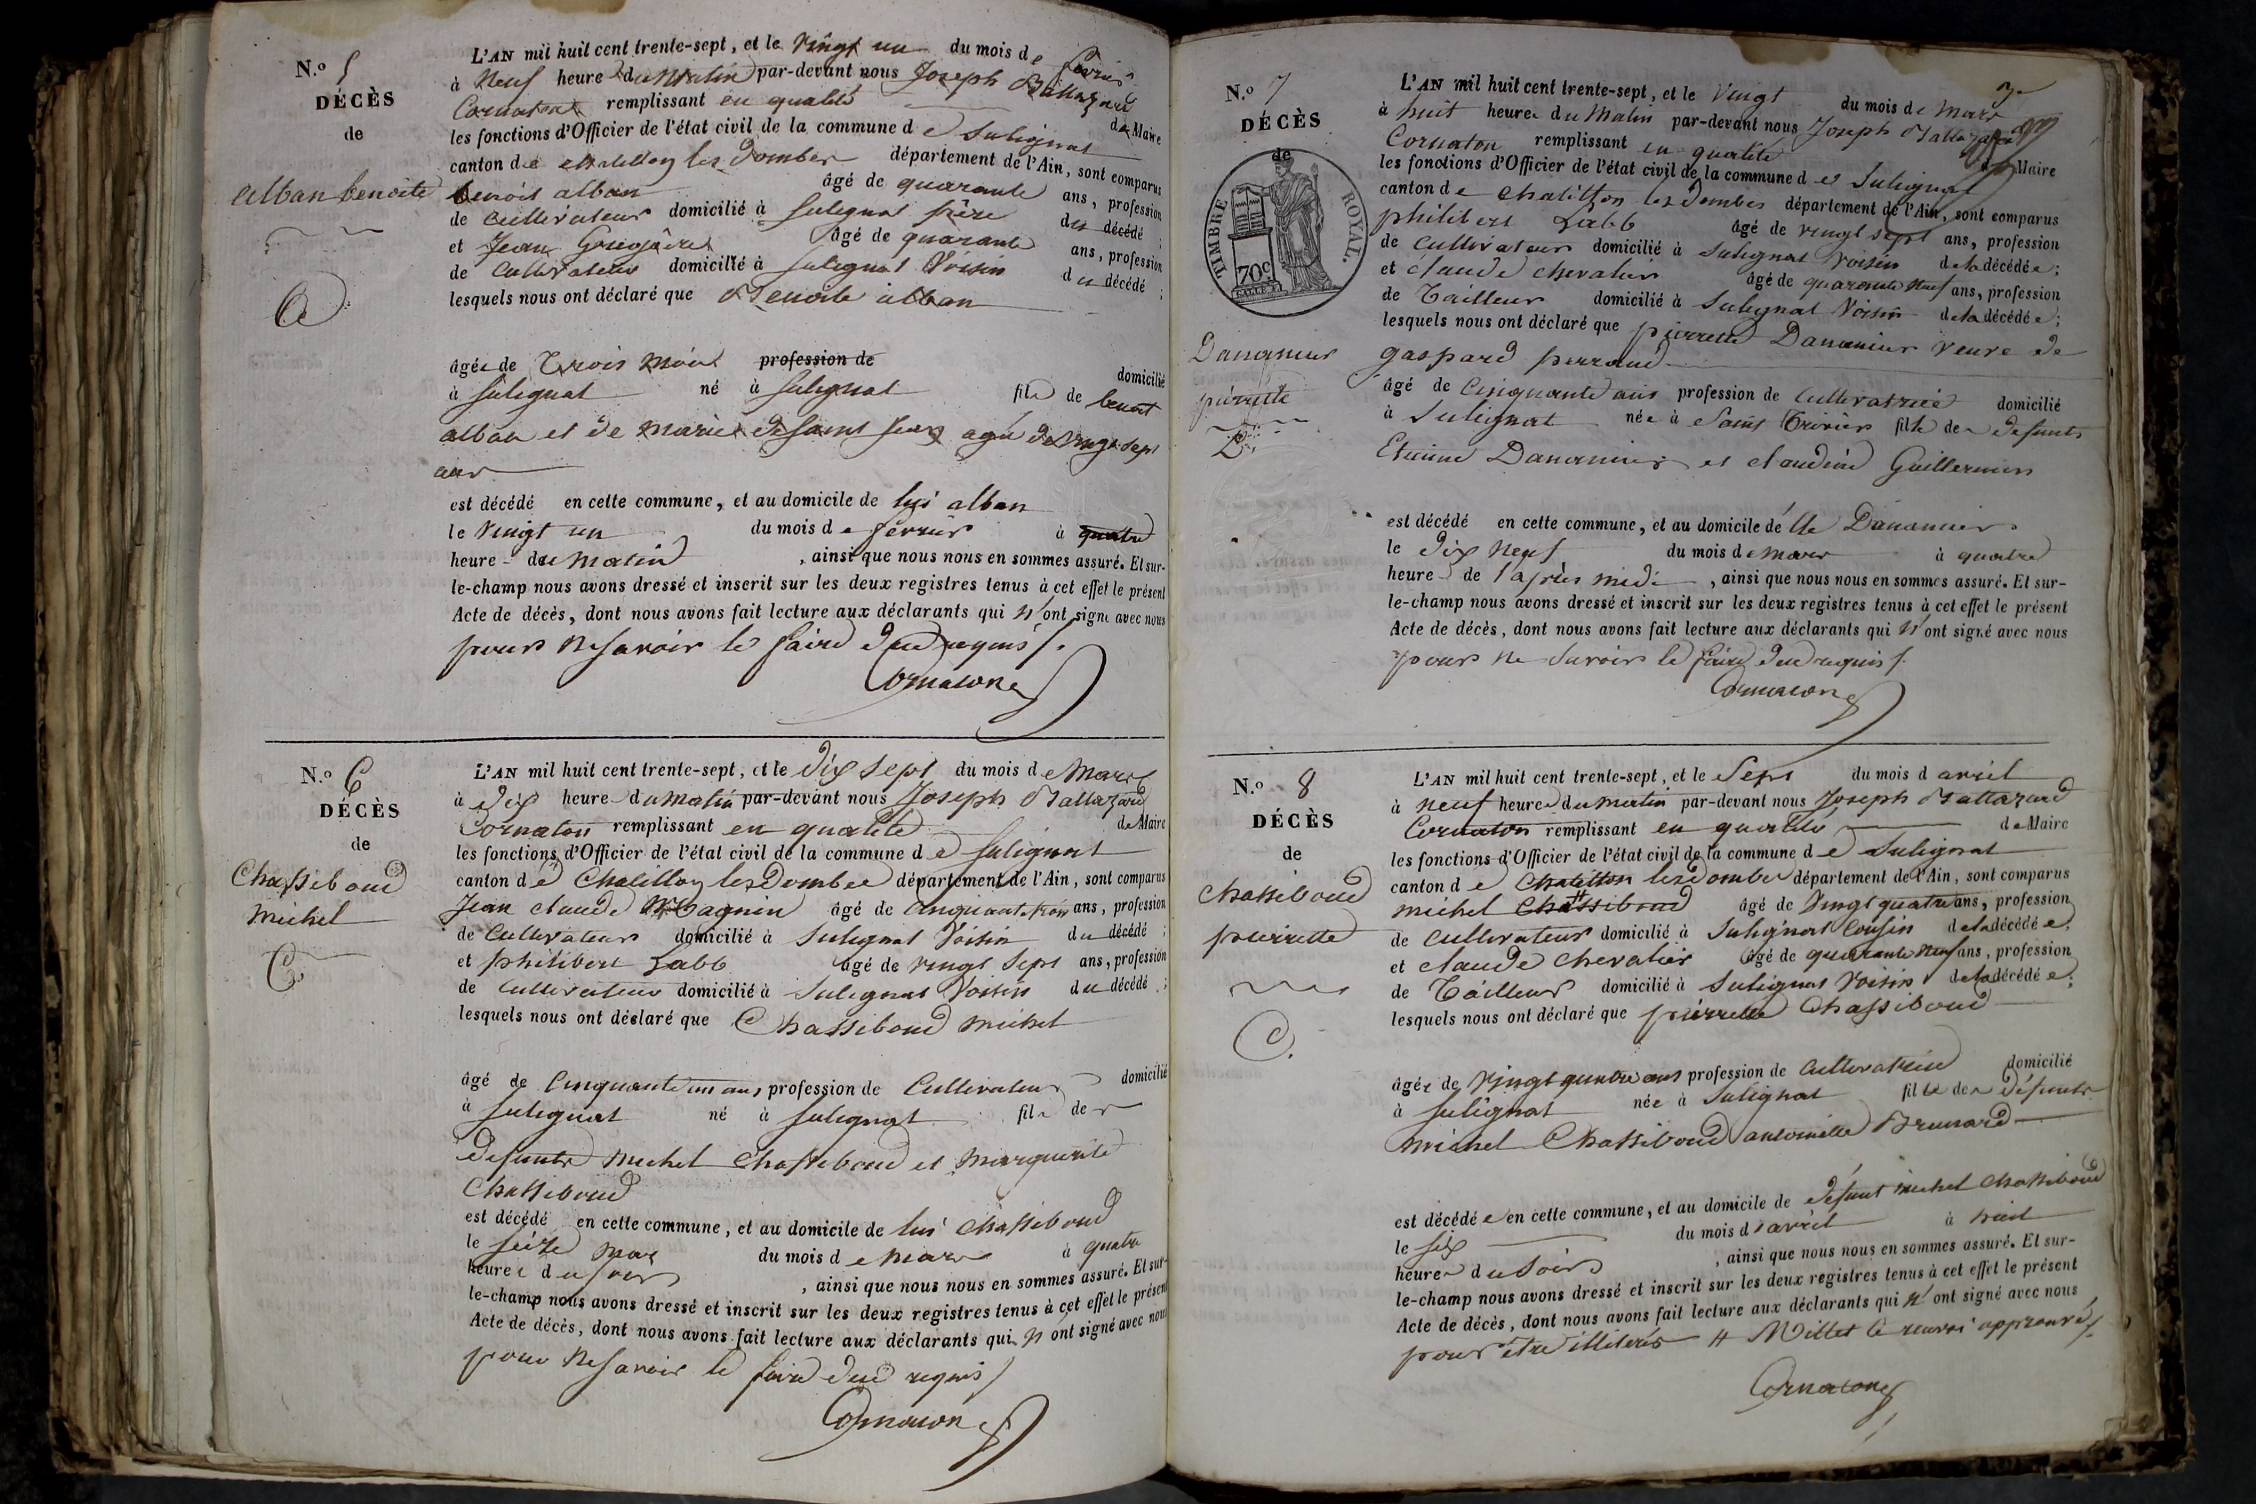 N.o 5
DÉCÈS
de
alban benoite
L'AN mil huit cent trente-sept, et le vingt un du mois de février
à neuf heure du Matin par-devant nous Joseph Baltazard
Cornaton remplissant en qualité de Maire
les fonctions d'Officier de l'état civil de la commune de Sulignat
canton de chatillon les Dombes département de l'Ain, sont comparus
benoit alban âgé de quarante ans, profession
de cultivateur domicilié à Sulignat père du décédé ;
et Jean âgé de quarante ans, profession
de cultivateur domicilié à Sulignat Voisin du décédé ;
lesquels nous ont déclaré que Benoite alban
âgée de trois mois profession de domicilié
à Sulignat né à Sulignat file de benoit
alban et de marie desaint jean agé de vingt sept
ans
est décédé en cette commune, et au domicile de lui alban
le vingt un du mois de février à quatre
heure du matin , ainsi que nous nous en sommes assuré. Et sur-
le-champ nous avons dressé et inscrit sur les deux registres tenus à cet effet le présent
Acte de décès, dont nous avons fait lecture aux déclarants qui n'ont signé avec nous
pour ne savoir le faire due requis.
Cornaton
N.o 6
DÉCÈS
de
Chassiboud
michel
C
L'AN mil huit cent trente-sept, et le dix sept du mois de Mars
à dix heure du matin par-devant nous Joseph Baltazard
Cornaton remplissant en qualité de Maire
les fonctions d'Officier de l'état civil de la commune de Sulignat
canton de Chatillon les Dombes département de l'Ain, sont comparus
Jean claude Magnin âgé de cinquante trois ans, profession
de Cultivateur domicilié à Sulignat Voisin du décédé ;
et philibert Labb âgé de vingt sept ans, profession
de cultivateur domicilié à Sulignat Voisin du décédé ;
lesquels nous ont déclaré que Chassiboud michel
âgé de cinquante un ans profession de Cultivateur domicilié
à Sulignat né à Sulignat file de
defunts michel Chassiboud et marguerite
Chassiboud
est décédé en cette commune, et au domicile de lui Chassiboud
le seize mars du mois de mars à quatre
heure du soir , ainsi que nous nous en sommes assuré. Et sur-
le-champ nous avons dressé et inscrit sur les deux registres tenus à cet effet le présent
Acte de décès, dont nous avons fait lecture aux déclarants qui n'ont signé avec nous
pour ne savoir le faire due requis
Cornaton
N.o 7
DÉCÈS
de
TIMBRE ROYAL.
70c
Dananier
pierrette
D
L'AN mil huit cent trente-sept, et le vingt du mois de Mars
à huit heure du Matin par-devant nous Joseph Baltazard
Cornaton remplissant en qualité de Maire
les fonctions d'Officier de l'état civil de la commune de Sulignat
canton de chatillon les Dombes département de l'Ain, sont comparus
philibert Labb âgé de vingt sept ans, profession
de cultivateur domicilié à Sulignat Voisin de la décédée ;
et claude chevalier âgé de quarante neuf ans, profession
de Tailleur domicilié à Sulignat Voisin de la décédée ;
lesquels nous ont déclaré que pierrette Dananier veuve de
gaspard perraud
âgé de cinquante ans profession de cultivatrice domicilié
à Sulignat née à Saint Trivier fille de defunts
Etienne Dananier et claudine Guillermin
est décédé en cette commune, et au domicile de lle Dananier
le dix neuf du mois de mars à quatre
heure de l'après midi , ainsi que nous nous en sommes assuré. Et sur-
le-champ nous avons dressé et inscrit sur les deux registres tenus à cet effet le présent
Acte de décès, dont nous avons fait lecture aux déclarants qui n'ont signé avec nous
pour ne savoir le faire due requis.
Cornaton
N.o 8
DÉCÈS
de
chassiboud
pierrette
C.
L'AN mil huit cent trente-sept, et le Sept du mois d avril
à neuf heure du matin par-devant nous Joseph Baltazard
Cornaton remplissant en qualité de Maire
les fonctions d'Officier de l'état civil de la commune de Sulignat
canton de chatillon les Dombes département de l'Ain, sont comparus
michel Chassiboud âgé de vingt quatre ans, profession
de cultivateur domicilié à Sulignat Cousin de la décédée ;
et claude chevalier âgé de quarante neuf ans, profession
de Tailleur domicilié à Sulignat Voisin de la décédée ;
lesquels nous ont déclaré que pierrette Chassiboud
âgée de vingt quatre ans profession de cultivatrice domicilié
à Sulignat née à Sulignat fille de défunts
michel Chassiboud antoinette Brunard
est décédée en cette commune, et au domicile de défunt michel Chassiboud
le six du mois d'avril à huit
heure du Soir , ainsi que nous nous en sommes assuré. Et sur-
le-champ nous avons dressé et inscrit sur les deux registres tenus à cet effet le présent
Acte de décès, dont nous avons fait lecture aux déclarants qui n'ont signé avec nous
pour être illiterés # Millet le renvoi approuvé
Cornaton